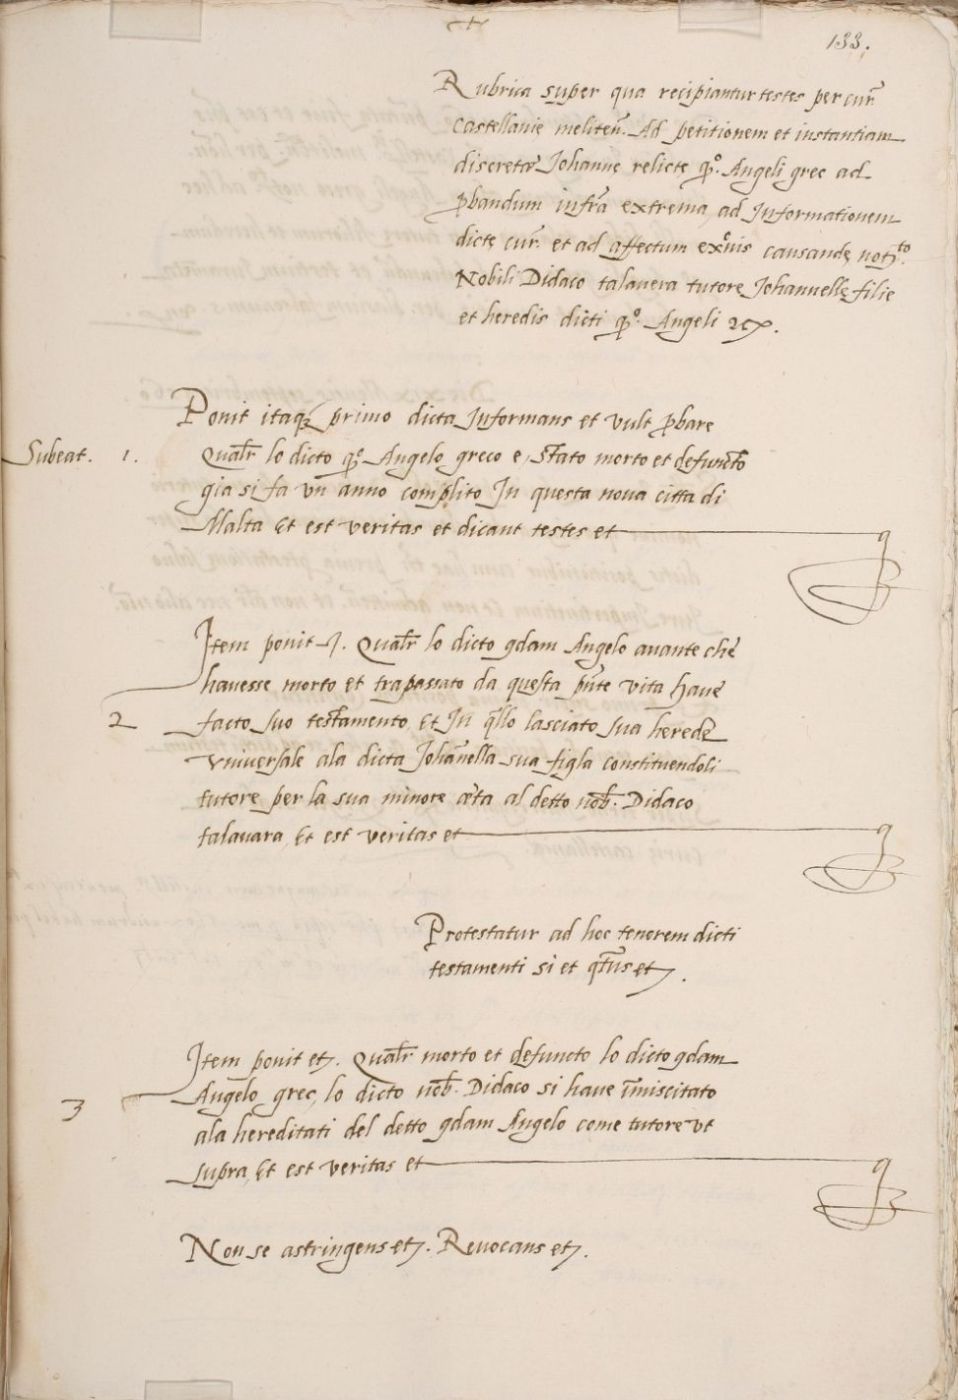 133.
Rubrica super qua recipiantur testes per cur̃
castellanie meliteñ. Ad petitionem et instantiam
discrete Johanne relicte qͦ. Angeli grec ad
ꝓbandum infra extrema, ad Informationem
dicte cur̃ et ad affectum causande
Nobili Didaco talavera tutore Johannelle filie
et heredis dicti qͦ. Angeli
Ponit itaqʒ primo dicta Informans et vult ꝓbare
Subeat. 1. Qualr̃ lo dicto qͦ Angelo greco e stato morto et defuncto
gia si fa un anno complito In questa nova citta di
Malta Et est veritas et dicant testes et
Item ponit Qualr̃ lo dicto qdam Angelo avante che
havesse morto et trapassato da questa pñte vita have
2 facto suo testamento, Et In qllo lasciato sua herede
universale ala dicta Johañella sua figla constituendoli
tutore per la sua minore æta al detto nob̃. Didaco
talavara, Et est veritas et
Protestatur ad hoc tenerem dicti
testamenti si et qtus et
Item ponit et. Qualr̃ morto et defuncto lo dicto qdam
Angelo grec, lo dicto nob̃. Didaco si have im̃iscitato
3 ala hereditati del detto qdam Angelo come tutore ut
supra, Et est veritas et
Non se astringens et. Revocans et.